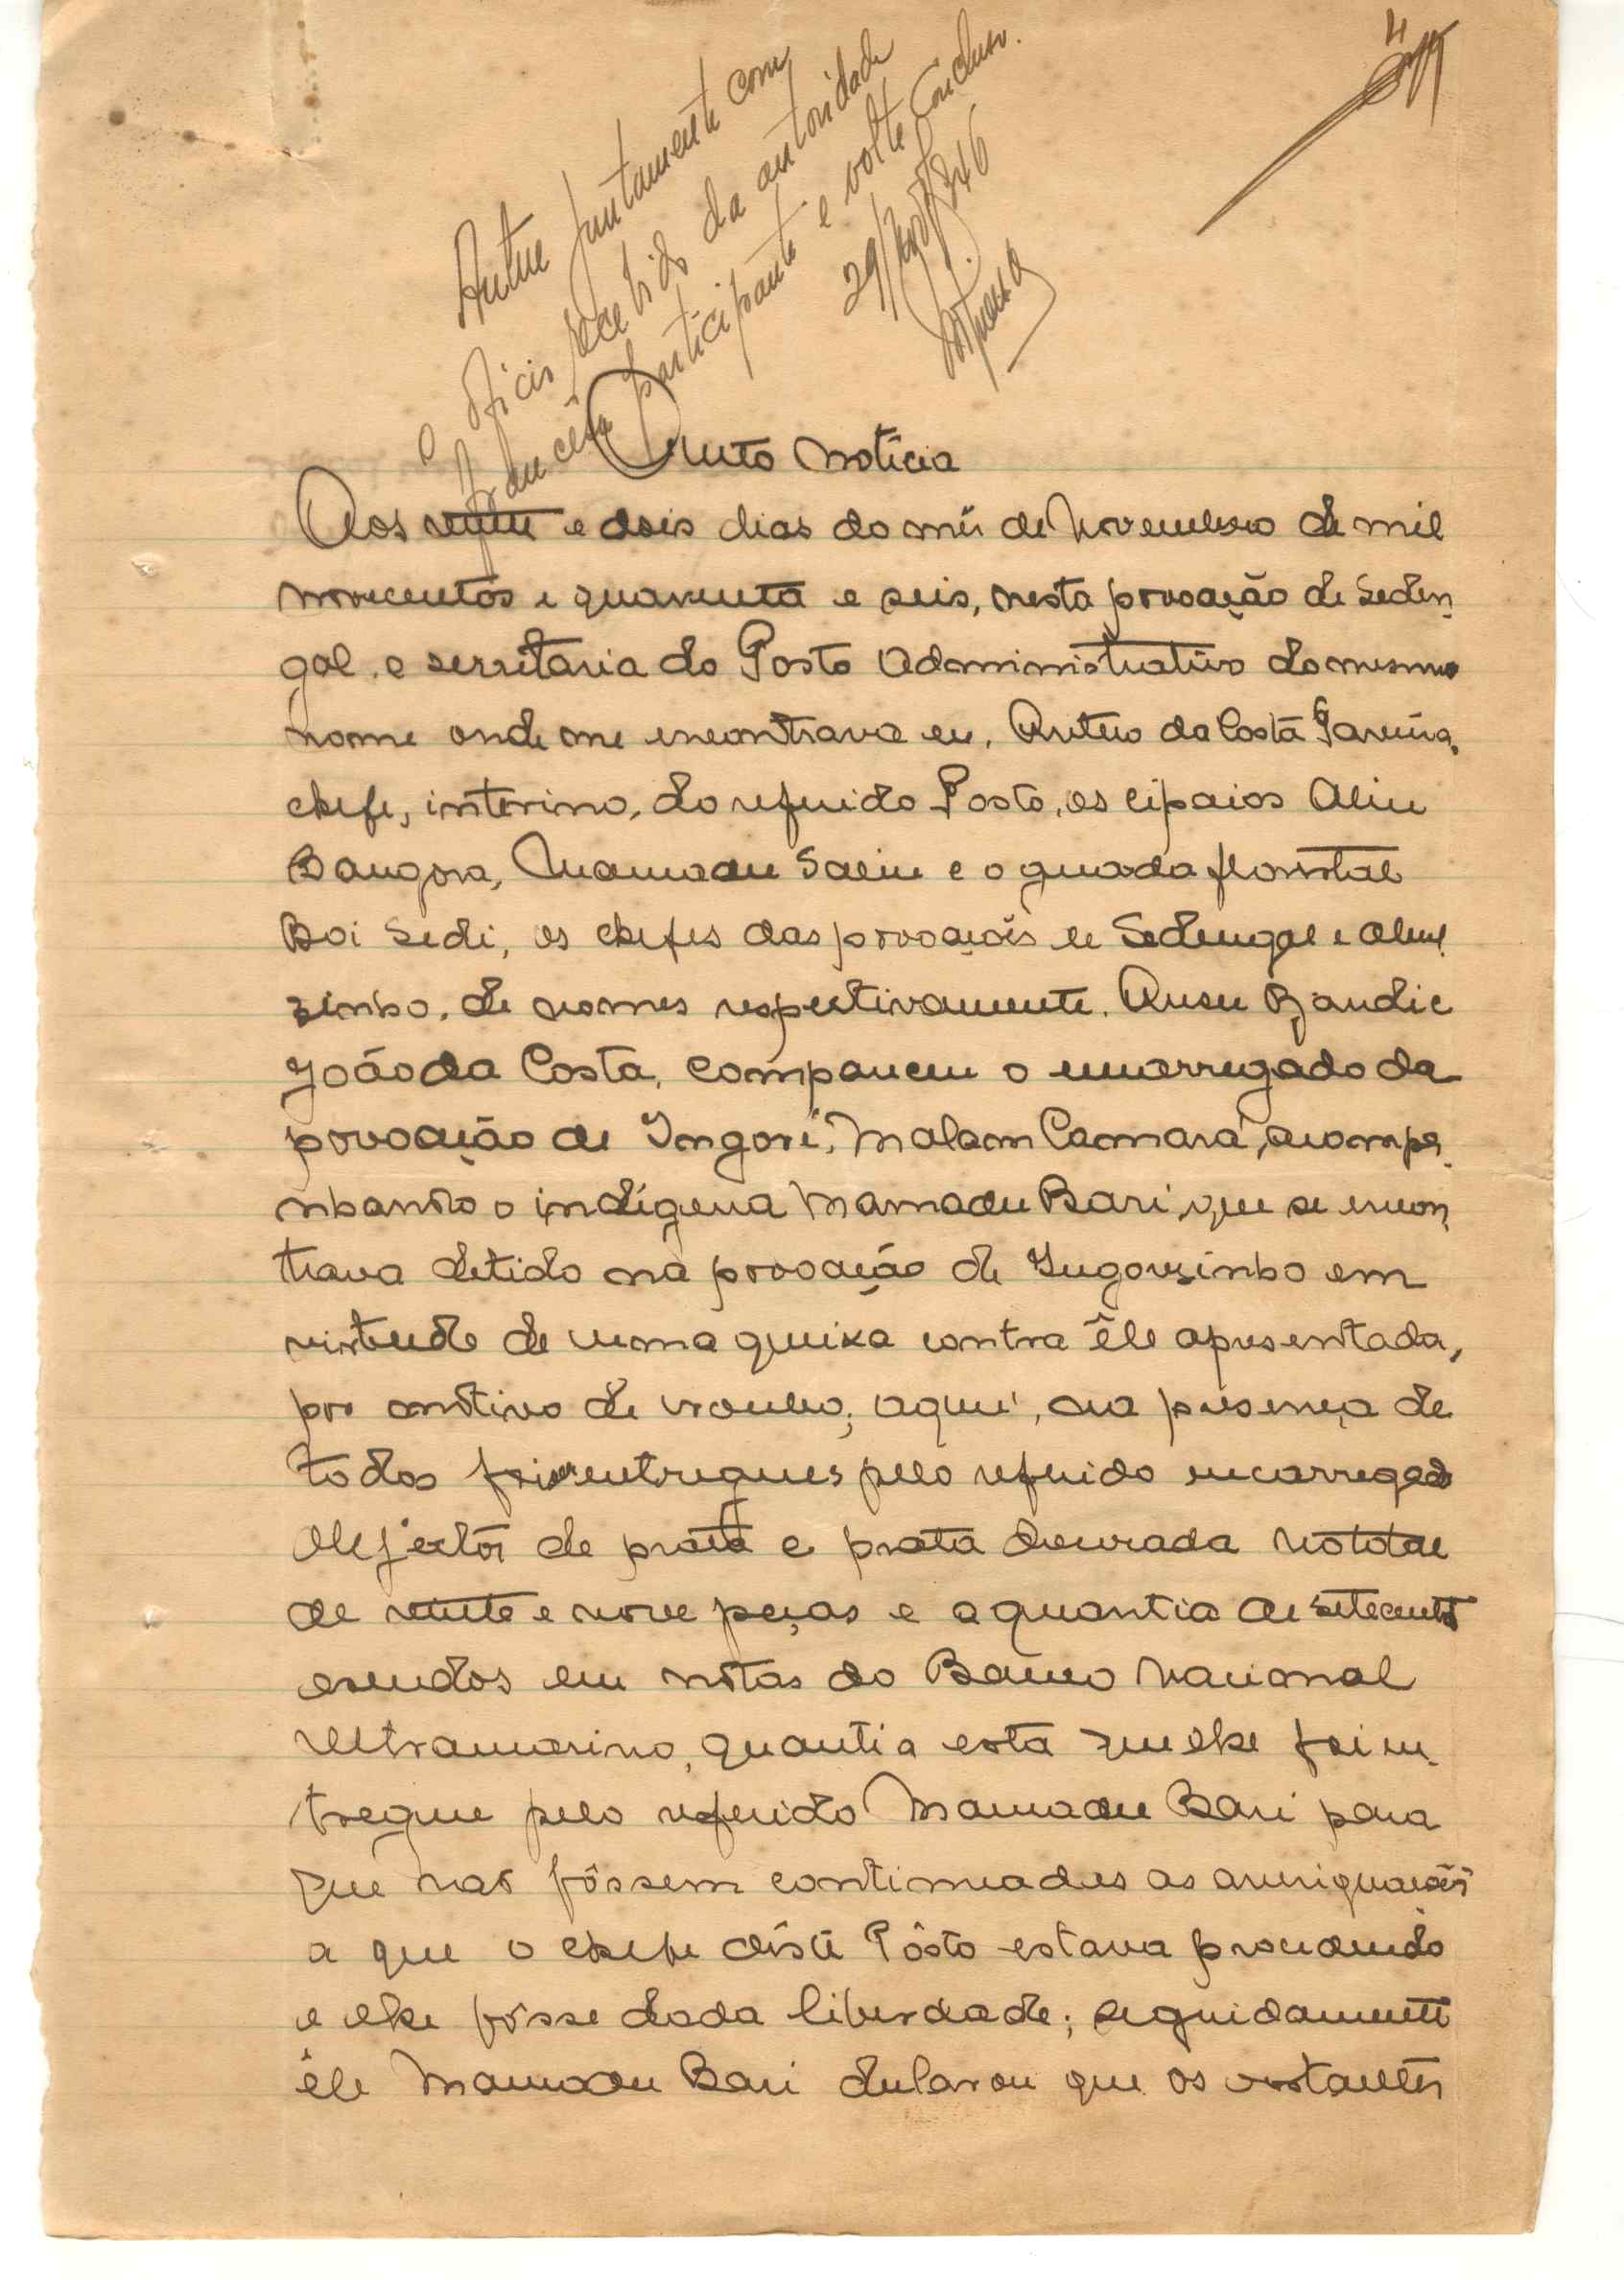 4
Autue juntamente com
o oficio recebido da autoridade
francêsa participante e volte concluso.
29/Nov/946
Auto notícia
Aos vinte e dois dias do mês de Novembro de mil
novecentos e quarenta e seis, nesta povoação de Seden-
gal e secretaria do Posto Administrativo do mesmo
nome onde me encontrava eu, Artur da Costa Pareira,
chefe, interino, do referido Posto, os cipaios Aliu
Bangora, Mamadu Saliu e o guarda florestal
Boi Sedi, os chefes das povoações de Sedengal e
zinho, de nomes respectivamente, Ansu Bjandic
João da Costa, compareceu o encarregado da
povoação de Ingoré, Malam Camará, acompa-
nhando o indígena Mamadu Bari, que se encon-
trava detido na povoação de Ingorèzinho em
virtude de uma queixa contra êle apresentada,
por motivo de roubo; aqui, na presença de
todos foi entregues pelo referido encarregado
objectos de prata e prata dourada no total
de vinte e nove peças e a quantia de setecentos
escudos em notas do Banco Nacional
Ultramarino, quantia esta que lhe foi en-
tregue pelo referido Mamadu Bari para
que não fôssem continuadas as averiguações
a que o chefe dêste Pôsto estava procedendo
e lhe fôsse dada liberdade; seguidamente
êle Mamadu Bari declarou que os restantes